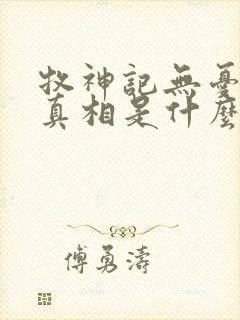 牧神記無憂
真相是什麼
傅勇濤